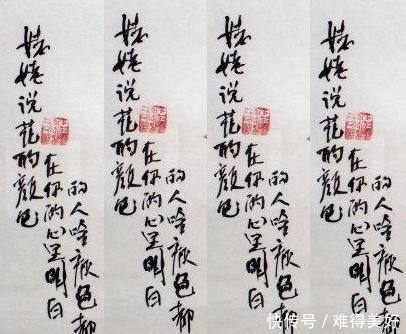 姥姥说花的颜色
在你的心里明白
的人啥颜色都
姥姥说花的颜色
在你的心里明白
的人啥颜色都
姥姥说花的颜色
在你的心里明白
的人啥颜色都
姥姥说花的颜色
在你的心里明白
的人啥颜色都
快传号/难得美好